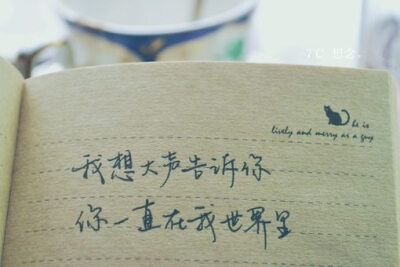 7℃ 想念、
he is
lively and merry as a guy
我想大声告诉你
你一直在我世界里